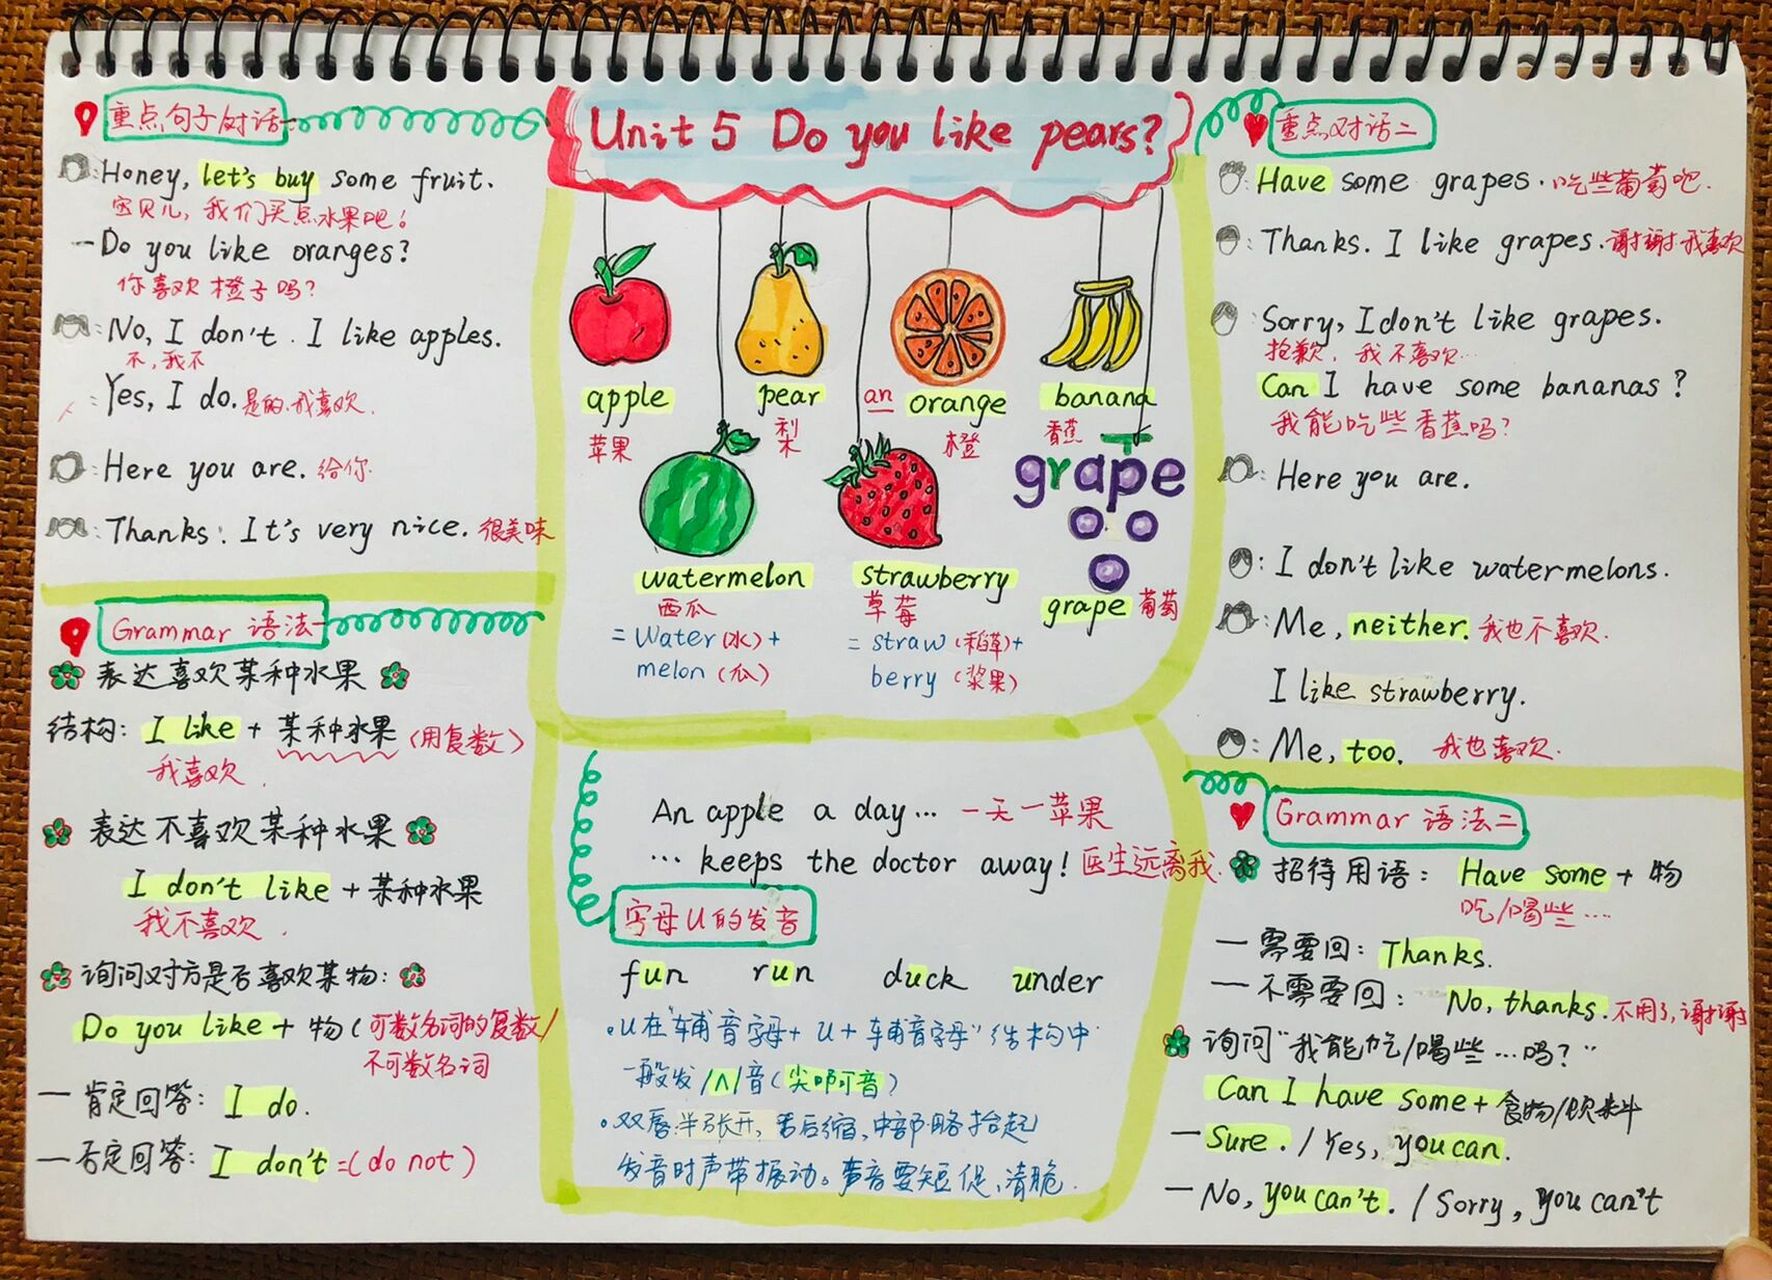 Unit 5 Do you like pears?
重点句子对话
Honey, let's buy some fruit.
宝贝儿，我们买点水果吧！
-Do you like oranges?
你喜欢橙子吗？
: No, I don't. I like apples.
不，我不
: Yes, I do. 是的，我喜欢.
: Here you are. 给你.
: Thanks! It's very nice. 很美味
Grammar 语法一
表达喜欢某种水果
结构: I like + 某种水果 (用复数)
我喜欢
表达不喜欢某种水果
I don't like + 某种水果
我不喜欢
询问对方是否喜欢某物:
Do you like + 物 (可数名词的复数/
不可数名词
— 肯定回答: I do.
— 否定回答: I don't =(do not)
apple
苹果
pear
梨
an orange
橙
banana
香蕉
watermelon
西瓜
= water (水) +
melon (瓜)
strawberry
草莓
= straw (稻草)+
berry (浆果)
grape
grape 葡萄
An apple a day... 一天一苹果
... keeps the doctor away! 医生远离我.
字母U的发音
fun run duck under
•u在"辅音字母+ u + 辅音字母"结构中
一般发/ʌ/音(尖啊音)
•双唇半张开, 舌后缩, 中部略抬起
发音时声带振动。声音要短促、清脆.
重点对话二
: Have some grapes. 吃些葡萄吧.
: Thanks. I like grapes. 谢谢我喜欢
: Sorry, I don't like grapes.
抱歉, 我不喜欢...
Can I have some bananas?
我能吃些香蕉吗?
: Here you are.
: I don't like watermelons.
: Me, neither. 我也不喜欢.
I like strawberry.
: Me, too. 我也喜欢.
Grammar 语法二
招待用语: Have some + 物
吃/喝些...
— 需要回: Thanks.
— 不需要回: No, thanks. 不用了, 谢谢
询问"我能吃/喝些...吗?"
Can I have some + 食物/饮料
— Sure. / Yes, you can.
— No, you can't. / Sorry, you can't